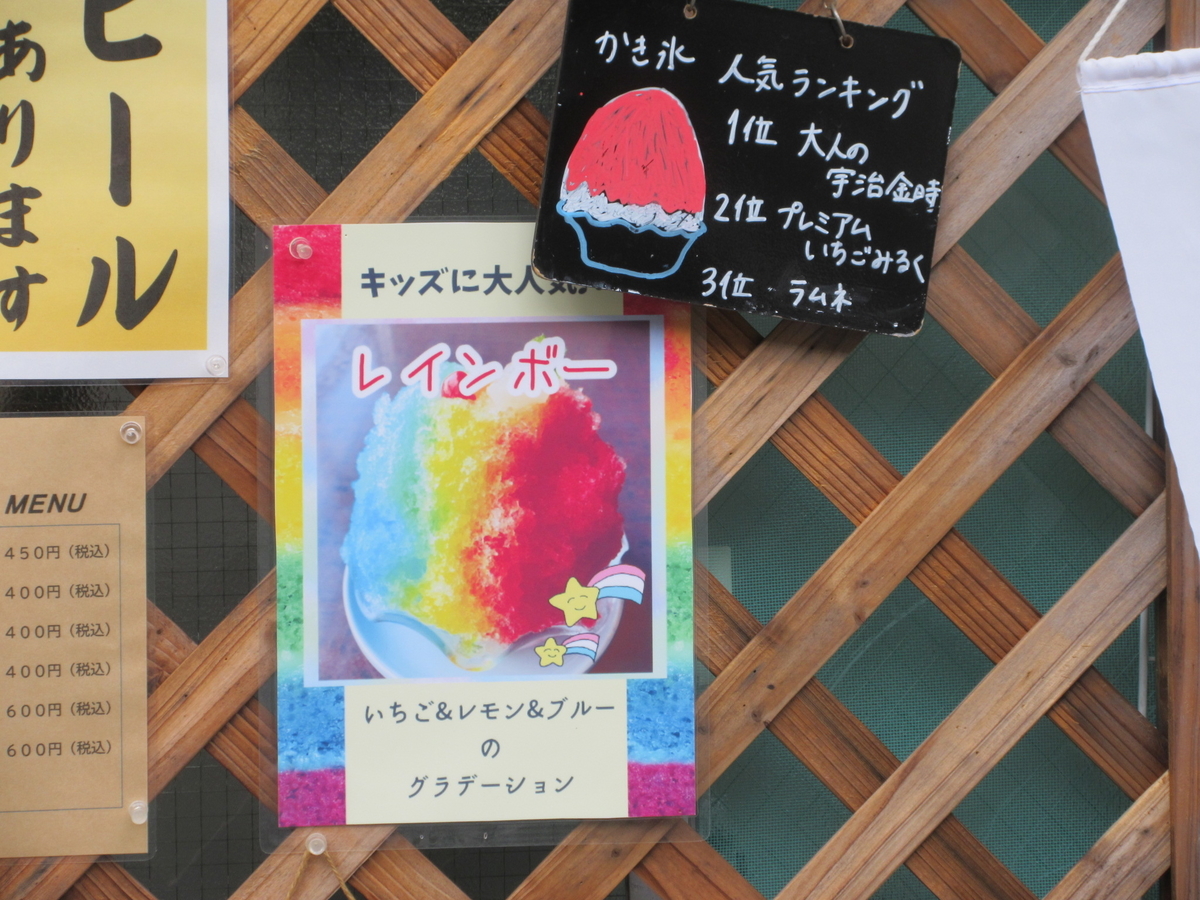 ビール
あります
MENU
450円（税込）
400円（税込）
400円（税込）
400円（税込）
600円（税込）
600円（税込）
キッズに大人気
レインボー
いちご&レモン&ブルー
の
グラデーション
かき氷 人気ランキング
1位 大人の
宇治金時
2位 プレミアム
いちごみるく
3位 ラムネ